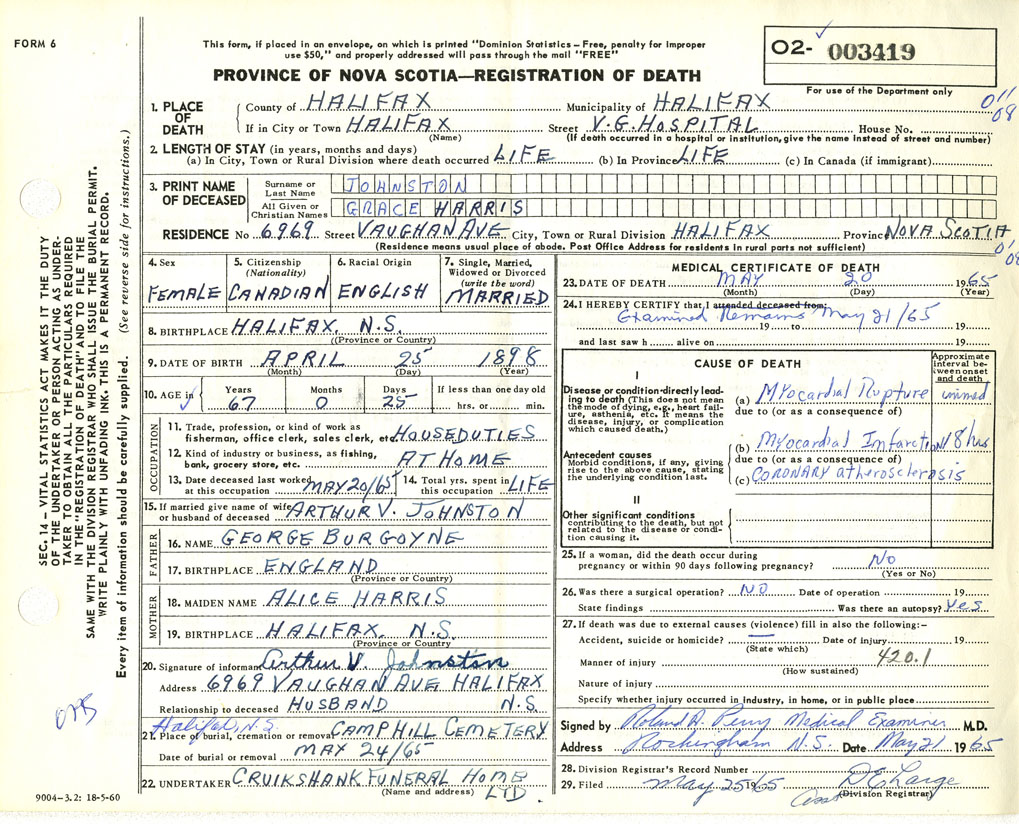 FORM 6
This form, if placed in an envelope, on which is printed "Dominion Statistics – Free, penalty for improper
use $50," and properly addressed will pass through the mail "FREE"
O2- 003419
PROVINCE OF NOVA SCOTIA—REGISTRATION OF DEATH
For use of the Department only
011
08
1. PLACE OF DEATH
County of HALIFAX Municipality of HALIFAX
If in City or Town HALIFAX Street V.G. HOSPITAL House No.
(Name) (If death occurred in a hospital or institution, give the name instead of street and number)
2. LENGTH OF STAY (in years, months and days)
(a) In City, Town or Rural Division where death occurred LIFE (b) In Province LIFE (c) In Canada (if immigrant)
3. PRINT NAME OF DECEASED
Surname or Last Name JOHNSTON
All Given or Christian Names GRACE HARRIS
RESIDENCE No 6969 Street VAUGHAN AVE City, Town or Rural Division HALIFAX Province NOVA SCOTIA
(Residence means usual place of abode. Post Office Address for residents in rural parts not sufficient)
01
08
4. Sex FEMALE
5. Citizenship (Nationality) CANADIAN
6. Racial Origin ENGLISH
7. Single, Married, Widowed or Divorced (write the word) MARRIED
8. BIRTHPLACE HALIFAX N.S.
(Province or Country)
9. DATE OF BIRTH APRIL 25 1898
(Month) (Day) (Year)
10. AGE in Years 67 Months 0 Days 25 If less than one day old hrs. or min.
OCCUPATION
11. Trade, profession, or kind of work as
fisherman, office clerk, sales clerk, etc. HOUSEDUTIES
12. Kind of industry or business, as fishing,
bank, grocery store, etc. AT HOME
13. Date deceased last worked at this occupation MAY 20/65 14. Total yrs. spent in this occupation LIFE
15. If married give name of wife or husband of deceased ARTHUR V. JOHNSTON
FATHER
16. NAME GEORGE BURGOYNE
17. BIRTHPLACE ENGLAND
(Province or Country)
MOTHER
18. MAIDEN NAME ALICE HARRIS
19. BIRTHPLACE HALIFAX N.S.
(Province or Country)
20. Signature of informant Arthur V. Johnston
Address 6969 VAUGHAN AVE HALIFAX
Relationship to deceased HUSBAND N.S.
Halifax, N.S.
21. Place of burial, cremation or removal CAMP HILL CEMETERY
Date of burial or removal MAY 24/65
22. UNDERTAKER CRUIKSHANK FUNERAL HOME
(Name and address) LTD.
MEDICAL CERTIFICATE OF DEATH
23. DATE OF DEATH MAY 20 1965
(Month) (Day) (Year)
24. I HEREBY CERTIFY that I attended deceased from:
Examined Remains May 21/65
19 to 19
and last saw h alive on 19
CAUSE OF DEATH
Approximate interval between onset and death
I
Disease or condition directly leading to death (This does not mean the mode of dying, e.g., heart failure, asthenia, etc. It means the disease, injury, or complication which caused death.)
(a) Myocardial Rupture immed
due to (or as a consequence of)
Antecedent causes
Morbid conditions, if any, giving rise to the above cause, stating the underlying condition last.
(b) Myocardial Infarction 18 hrs
due to (or as a consequence of)
(c) CORONARY atherosclerosis
II
Other significant conditions
contributing to the death, but not related to the disease or condition causing it.
25. If a woman, did the death occur during
pregnancy or within 90 days following pregnancy? No
(Yes or No)
26. Was there a surgical operation? NO Date of operation 19
State findings Was there an autopsy? Yes
27. If death was due to external causes (violence) fill in also the following:-
Accident, suicide or homicide? — Date of injury 19
(State which)
420.1
Manner of injury
(How sustained)
Nature of injury
Specify whether injury occurred in industry, in home, or in public place
Signed by Roland H. Perry Medical Examiner M.D.
Address Rockingham N.S. Date May 21 1965
28. Division Registrar's Record Number
29. Filed May 25 1965 D E Large
Asst (Division Registrar)
9004-3.2: 18-5-60
SEC. 14 – VITAL STATISTICS ACT MAKES IT THE DUTY
OF THE UNDERTAKER OR PERSON ACTING AS UNDER-
TAKER TO OBTAIN ALL THE PARTICULARS REQUIRED
IN THE "REGISTRATION OF DEATH" AND TO FILE THE
SAME WITH THE DIVISION REGISTRAR WHO SHALL ISSUE THE BURIAL PERMIT.
WRITE PLAINLY WITH UNFADING INK. THIS IS A PERMANENT RECORD.
Every item of information should be carefully supplied. (See reverse side for instructions.)